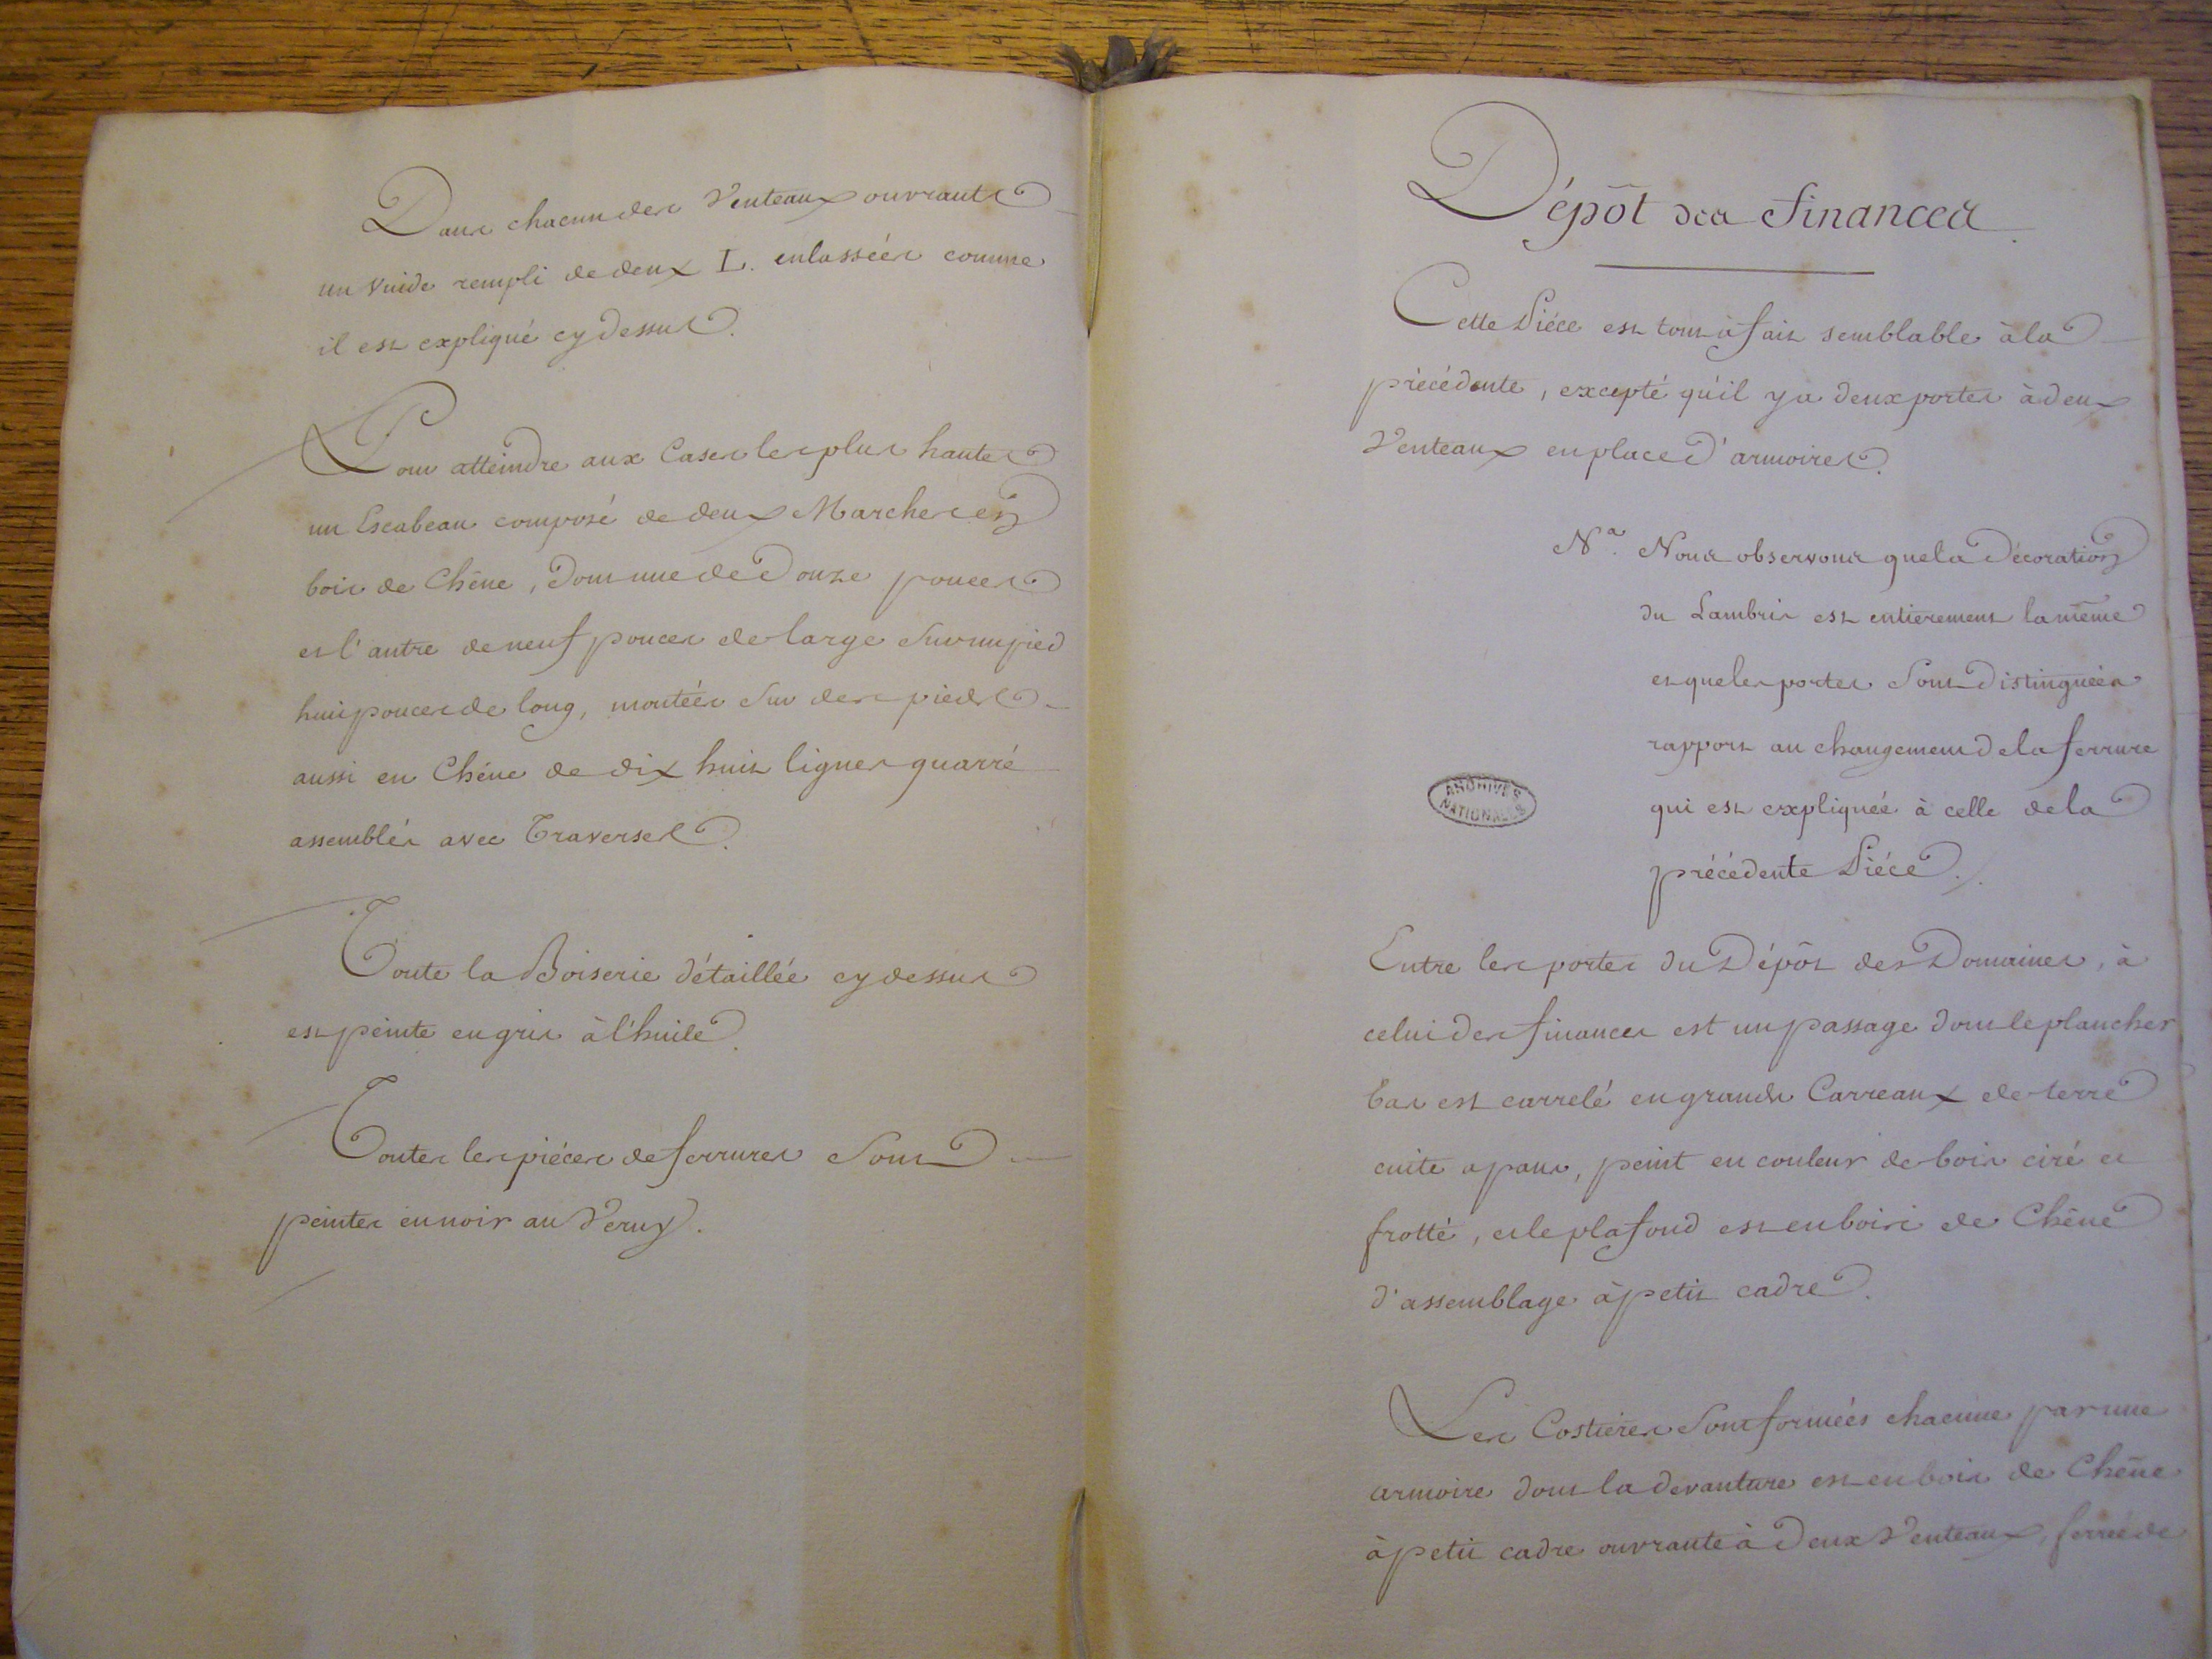 Dans chacun des Venteaux ouvrants
un vuide rempli de deux L. enlassées comme
il est expliqué cy dessus.
Pour atteindre aux Cases les plus hautes
un Escabeau composé de deux Marches en
bois de Chêne, dont une de Douze pouces
et l'autre de neuf pouces de large Sur un pied
huit pouces de long, montées Sur des pieds
aussi en Chêne de dix huit lignes quarré
assemblés avec Traverses.
Toute la Boiserie détaillée cy dessus
est peinte en gris à l'huile.
Toutes les piéces de ferrures Sont
peintes en noir au Verny.
Dépôt des Finances
Cette Piéce est tout à fait semblable à la
précédente, excepté qu'il y a deux portes à deux
Venteaux en place d'armoires.
Na. Nous observons que la Décoration
du Lambris est entierement la même
et que les portes Sont Distinguées
rapport au changement de la ferrure
qui est expliquée à celle de la
précédente Piéce.
ARCHIVES
NATIONALES
Entre les portes du Dépôt des Domaines, à
celui des finances est un passage dont le plancher
bas est carrelé en grands Carreaux de terre
cuite a pans, peint en couleur de bois ciré et
frotté, et le plafond est en bois de Chêne
d'assemblage à petit cadre.
Les Costieres Sont formées chacune par une
armoire dont la devanture est en bois de Chêne
à petit cadre ouvrante à Deux Venteaux, ferrée de